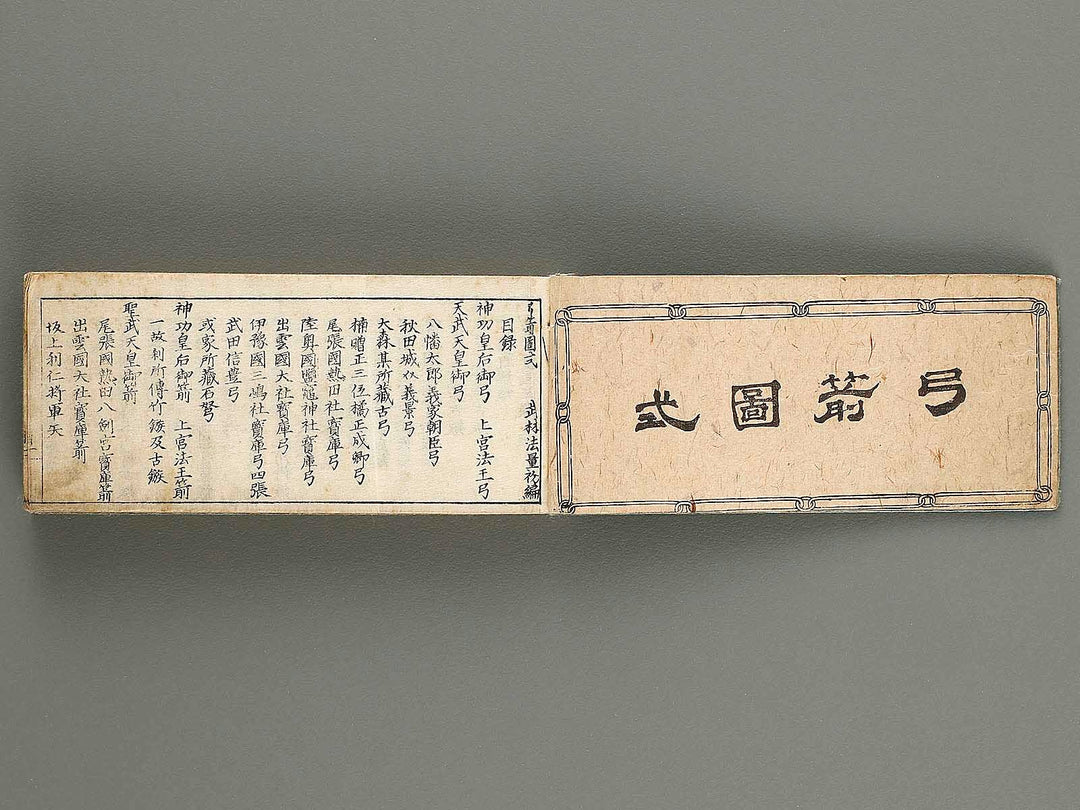 弓箭圖式
弓箭圖式 武林法量 編
目録
神功皇后御弓 上宮法王弓
天武天皇御弓
八幡太郎義家朝臣弓
秋田城介義景弓
大森某所藏古弓
楠贈正三位橘正成卿弓
尾張國熱田社寳庫弓
陸奥國鹽竈神社寳庫弓
出雲國大社寳庫弓
伊豫國三嶋社寳庫弓四張
武田信豊弓
或家所藏石弩
神功皇后御箭 上宮法王箭
一故利所傳竹鏃及古鏃
聖武天皇御箭
尾張國熱田八劔宮寳庫箭
出雲國大社寳庫箭
坂上利仁将軍矢